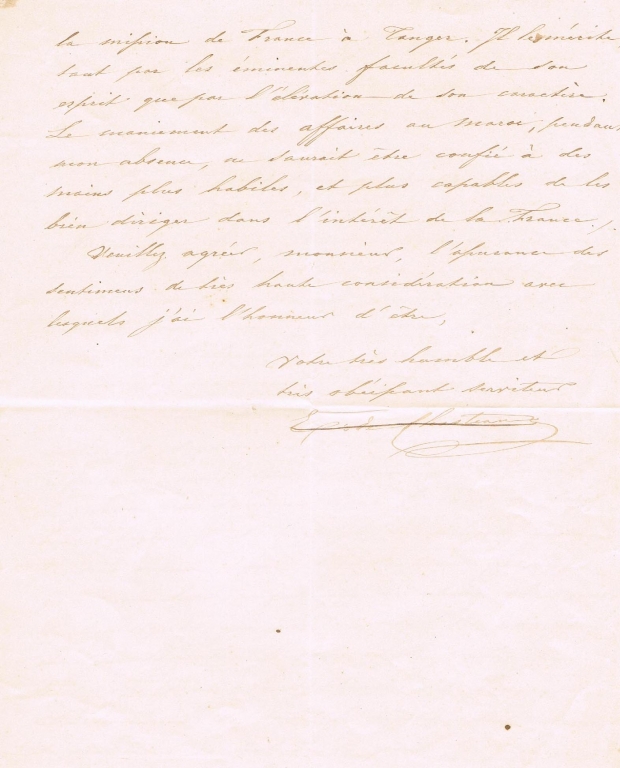 la mission de France à Tanger. Il le mérite,
tant par les éminentes facultés de son
esprit que par l'élévation de son caractère.
Le maniement des affaires au Maroc, pendant
mon absence, ne saurait être confié à des
mains plus habiles, et plus capables de les
bien diriger dans l'intérêt de la France./.
Veuillez agréer, monsieur, l'assurance des
sentimens de très haute considération avec
lesquels j'ai l'honneur d'être,
Votre très humble et
très obéissant serviteur
Chasteau